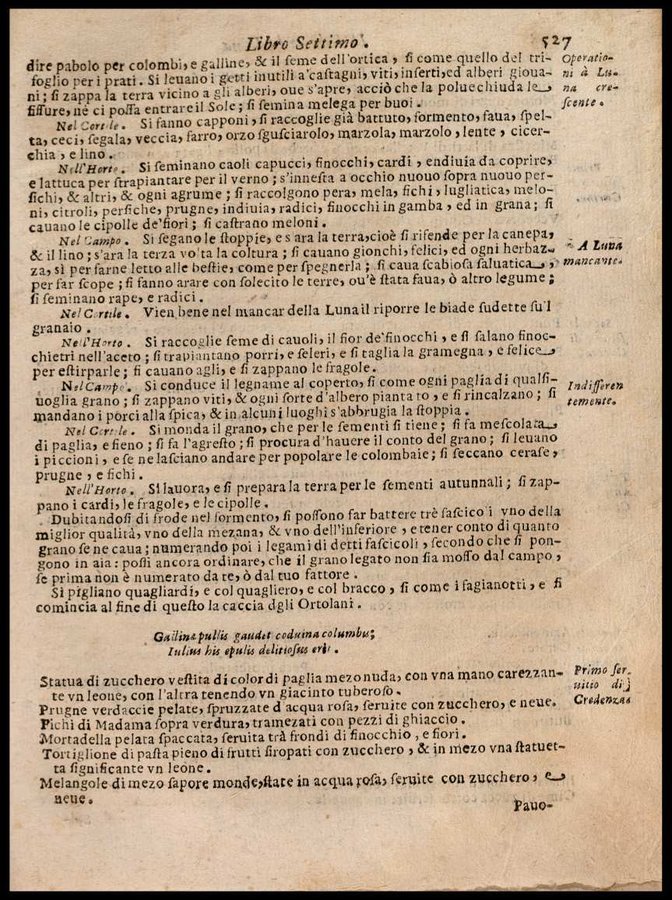 Libro Settimo.
527
dire pabolo per colombi, e galline, & il seme dell'ortica, sì come quello del tri-
foglio per i prati. Si leuano i getti inutili a'castagni, viti, inserti, ed alberi gioua-
ni; si zappa la terra vicino a gli alberi, oue s'apre, acciò che la polue chiuda le
fissure, nè ci possa entrare il Sole; si semina melega per buoi.
Operatio-
ni à Lu-
na cre-
scente.
Nel Cortile. Si fanno capponi, si raccoglie già battuto, formento, faua, spel-
ta, ceci, segala, veccia, farro, orzo sgusciarolo, marzola, marzolo, lente, cicer-
chia, e lino.
Nell'Horto. Si seminano caoli capucci, finocchi, cardi, endiuia da coprire,
e lattuca per strapiantare per il verno; s'innesta a occhio nuouo sopra nuouo per-
sichi, & altri, & ogni agrume; si raccolgono pera, mela, fichi, lugliatica, melo-
ni, citroli, persiche, prugne, indiuia, radici, finocchi in gamba, ed in grana; si
cauano le cipolle de'fiori; si castrano meloni.
Nel Campo. Si segano le stoppie, e s'ara la terra, cioè si risende per la canepa,
& il lino; s'ara la terza volta la coltura; si cauano gionchi, felici, ed ogni herbaz-
za, sì per farne letto alle bestie, come per spegnerla; si caua scabiosa saluatica,
per far scope; si fanno arare con solecito le terre, ou'è stata faua, ò altro legume;
si seminano rape, e radici.
A Luna
mancante.
Nel Cortile. Vien bene nel mancar della Luna il riporre le biade sudette su'l
granaio.
Nell'Horto. Si raccoglie seme di cauoli, il fior de'finocchi, e si salano finoc-
chietri nell'aceto; si trapiantano porri, e seleri, e si taglia la gramegna, e felice
per estirparle; si cauano agli, e si zappano le fragole.
Nel Campo. Si conduce il legname al coperto, sì come ogni paglia di qualsi-
uoglia grano; si zappano viti, & ogni sorte d'albero piantato, e si rincalzano; si
mandano i porci alla spica, & in alcuni luoghi s'abbrugia la stoppia.
Indifferen
temente.
Nel Cortile. Si monda il grano, che per le sementi si tiene; si fa mescolata
di paglia, e fieno; si fa l'agresto; si procura d'hauere il conto del grano; si leuano
i piccioni, e se ne lasciano andare per popolare le colombaie; si seccano cerase,
prugne, e fichi.
Nell'Horto. Si lauora, e si prepara la terra per le sementi autunnali; si zap-
pano i cardi, le fragole, e le cipolle.
Dubitandosi di frode nel formento, si possono far battere trè fascicoli vno della
miglior qualità, vno della mezana, & vno dell'inferiore, e tener conto di quanto
grano se ne caua; numerando poi i legami di detti fascicoli, secondo che si pon-
gono in aia: possi ancora ordinare, che il grano legato non sia mosso dal campo,
se prima non è numerato da te, ò dal tuo fattore.
Si pigliano quagliardi, e col quagliero, e col bracco, sì come i fagianotti, e si
comincia al fine di questo la caccia dgli Ortolani.
Gallina pullis gaudet coduina columbus;
Iulius his epulis delitiosus erit.
Statua di zucchero vestita di color di paglia mezo nuda, con vna mano carezzan-
te vn leone, con l'altra tenendo vn giacinto tuberoso.
Primo ser-
uitio di
Credenza.
Prugne verdaccie pelate, spruzzate d'acqua rosa, seruite con zucchero, e neue.
Pichi di Madama sopra verdura, tramezati con pezzi di ghiaccio.
Mortadella pelata spaccata, seruita trà frondi di finocchio, e fiori.
Tortiglione di pasta pieno di frutti siropati con zucchero, & in mezo vna statuet-
ta significante vn leone.
Melangole di mezo sapore monde, state in acqua rosa, seruite con zucchero, e
neue.
Pauo-